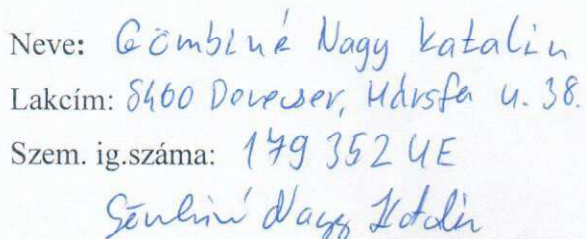 Neve: Gömbiné Nagy Katalin
Lakcím: 8460 Devecser, Hársfa u. 38.
Szem. ig.száma: 179352UE
Gömbiné Nagy Katalin